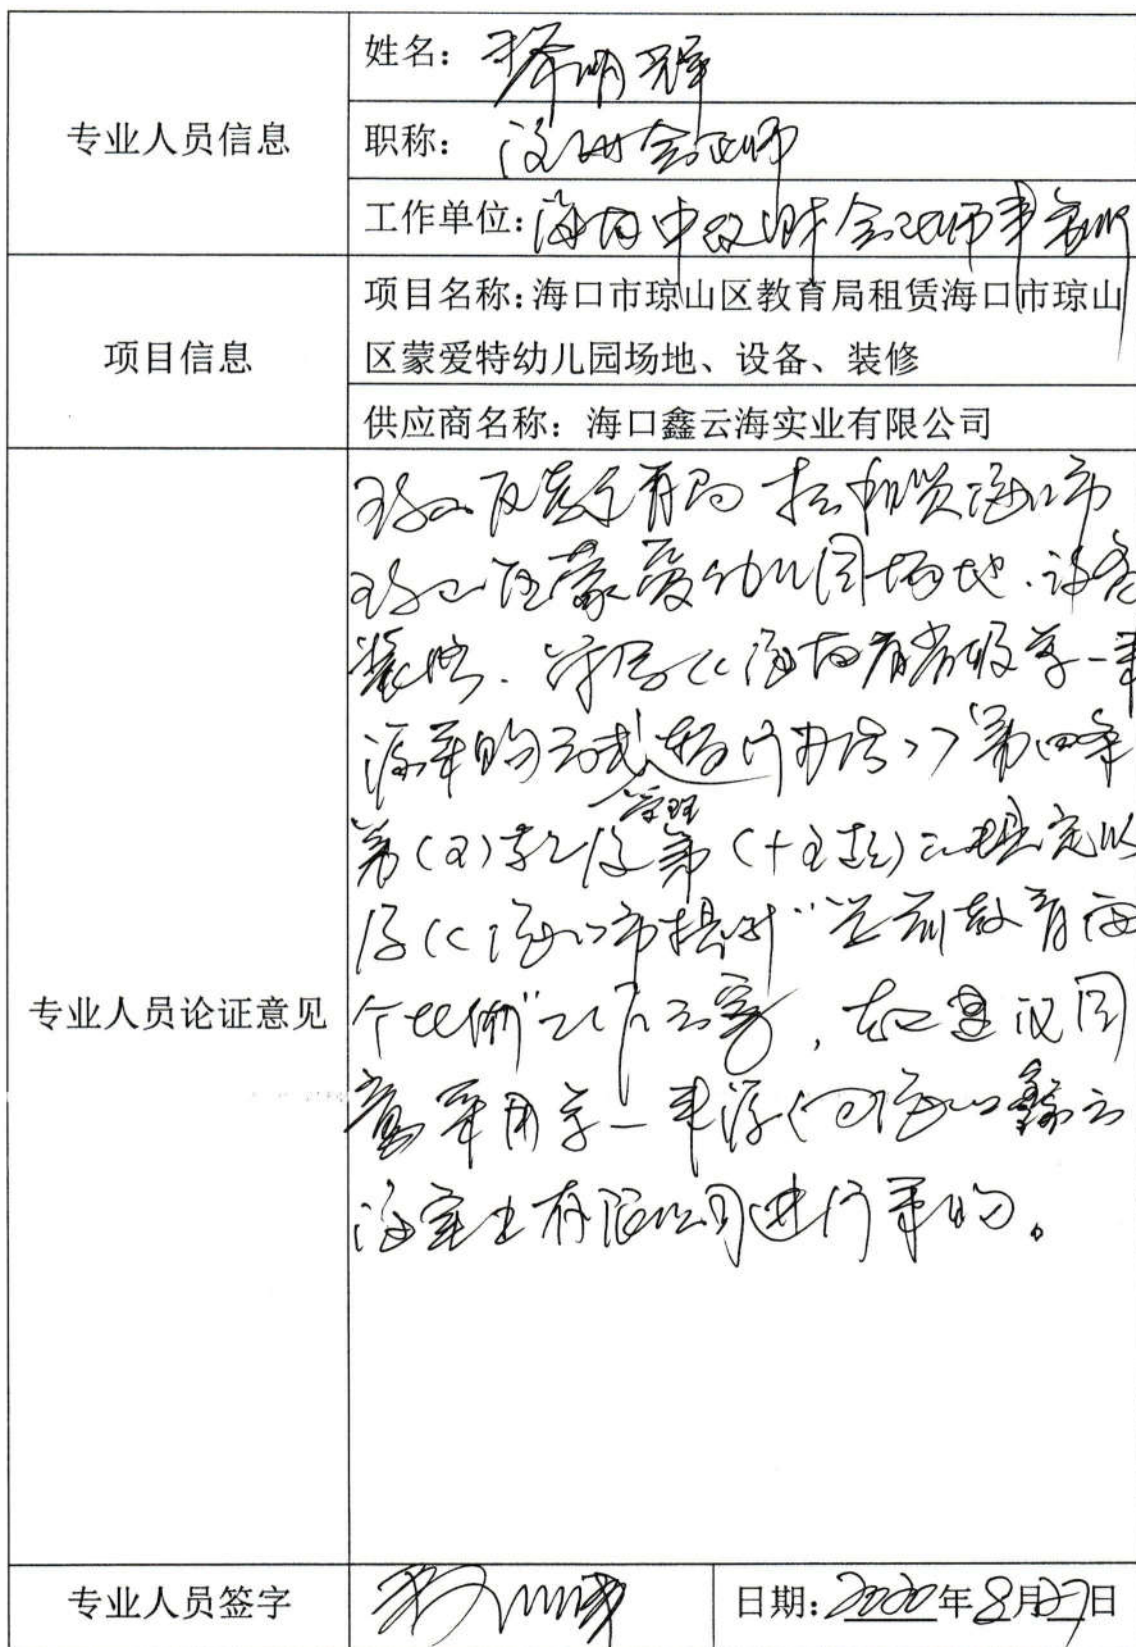 专业人员信息
姓名：
职称：注册会计师
工作单位：海南中 财会计师事务所
项目信息
项目名称：海口市琼山区教育局租赁海口市琼山
区蒙爱特幼儿园场地、设备、装修
供应商名称：海口鑫云海实业有限公司
专业人员论证意见
琼山区教育局 拟租赁海口市
琼山区蒙爱幼儿园场地、设备
装修、符合《海南省省级单一来
源采购方式管理暂行办法》第四条
第( )款及第(十 款)之规定以
及《海口市提升"学前教育两
个比例"工作方案，故建议同
意采用单一来源向海口鑫云
海实业有限公司进行采购。
专业人员签字
日期：2020年8月27日